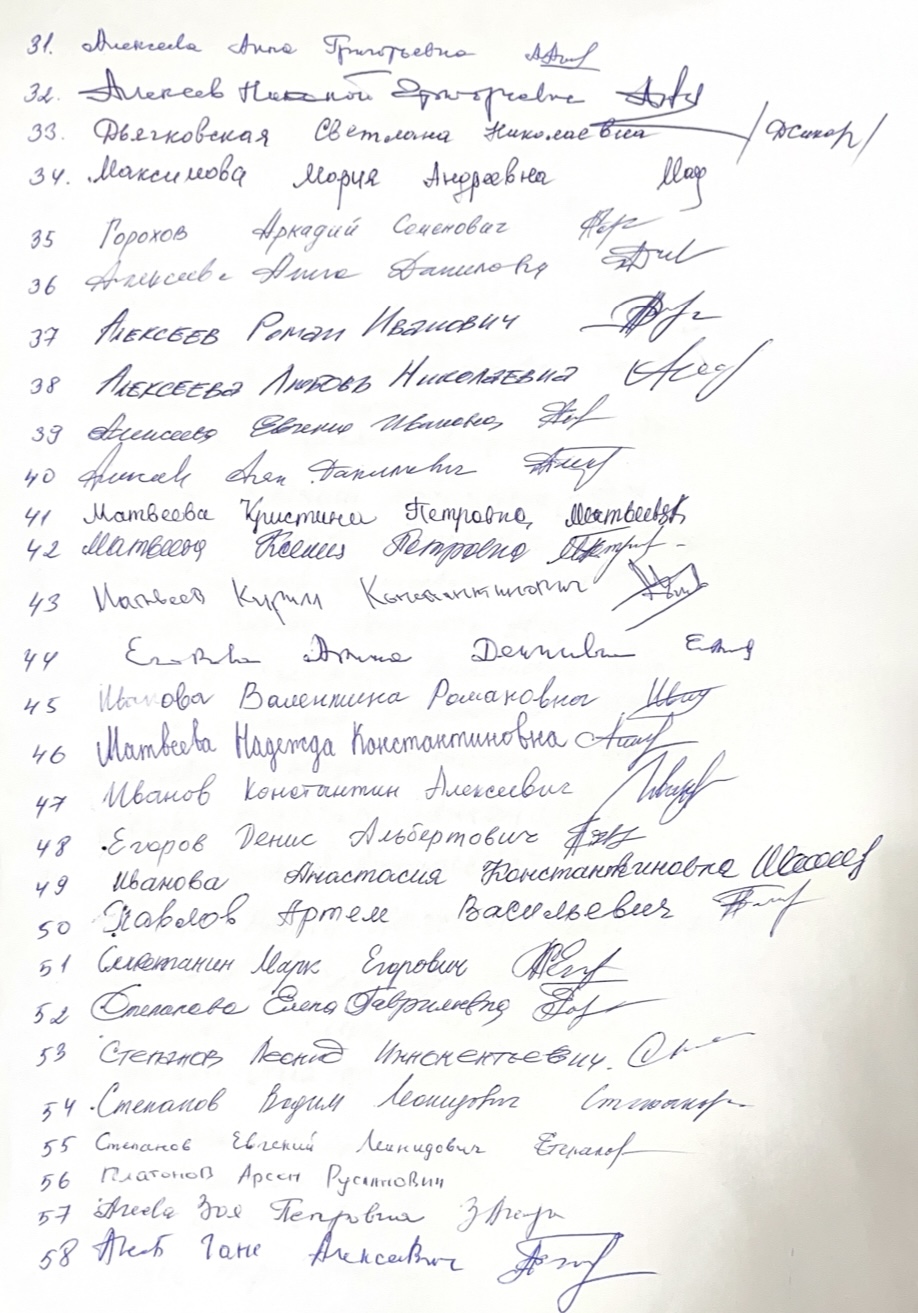 31. Алексеева Анна Григорьевна
32. Алексеев Николай Григорьевич
33. Дьячковская Светлана Николаевна
34. Максимова Мария Андреевна
35 Горохов Аркадий Семенович
36 Алексеева Анна Даниловна
37 Алексеев Роман Иванович
38 Алексеева Любовь Николаевна
39 Алексеева Евгения Ивановна
40 Данилович
41 Матвеева Кристина Петровна Матвеева
42 Матвеева Ксения Петровна
43 Матвеев Константинович
44 Егорова
45 Иванова Валентина Романовна
46 Матвеева Надежда Константиновна
47 Иванов Константин Алексеевич
48 Егоров Денис Альбертович
49 Иванова Анастасия Константиновна
50 Павлов Артем Васильевич
51 Сметанин Марк Егорович
52 Степанова Елена Гавриловна
53 Степанов Леонид Иннокентьевич.
54 Степанов Вадим Леонидович
55 Степанов Евгений Леонидович
56 Платонов Арсен Русланович
57 Агеева Зоя Петровна
58 Алексеевич